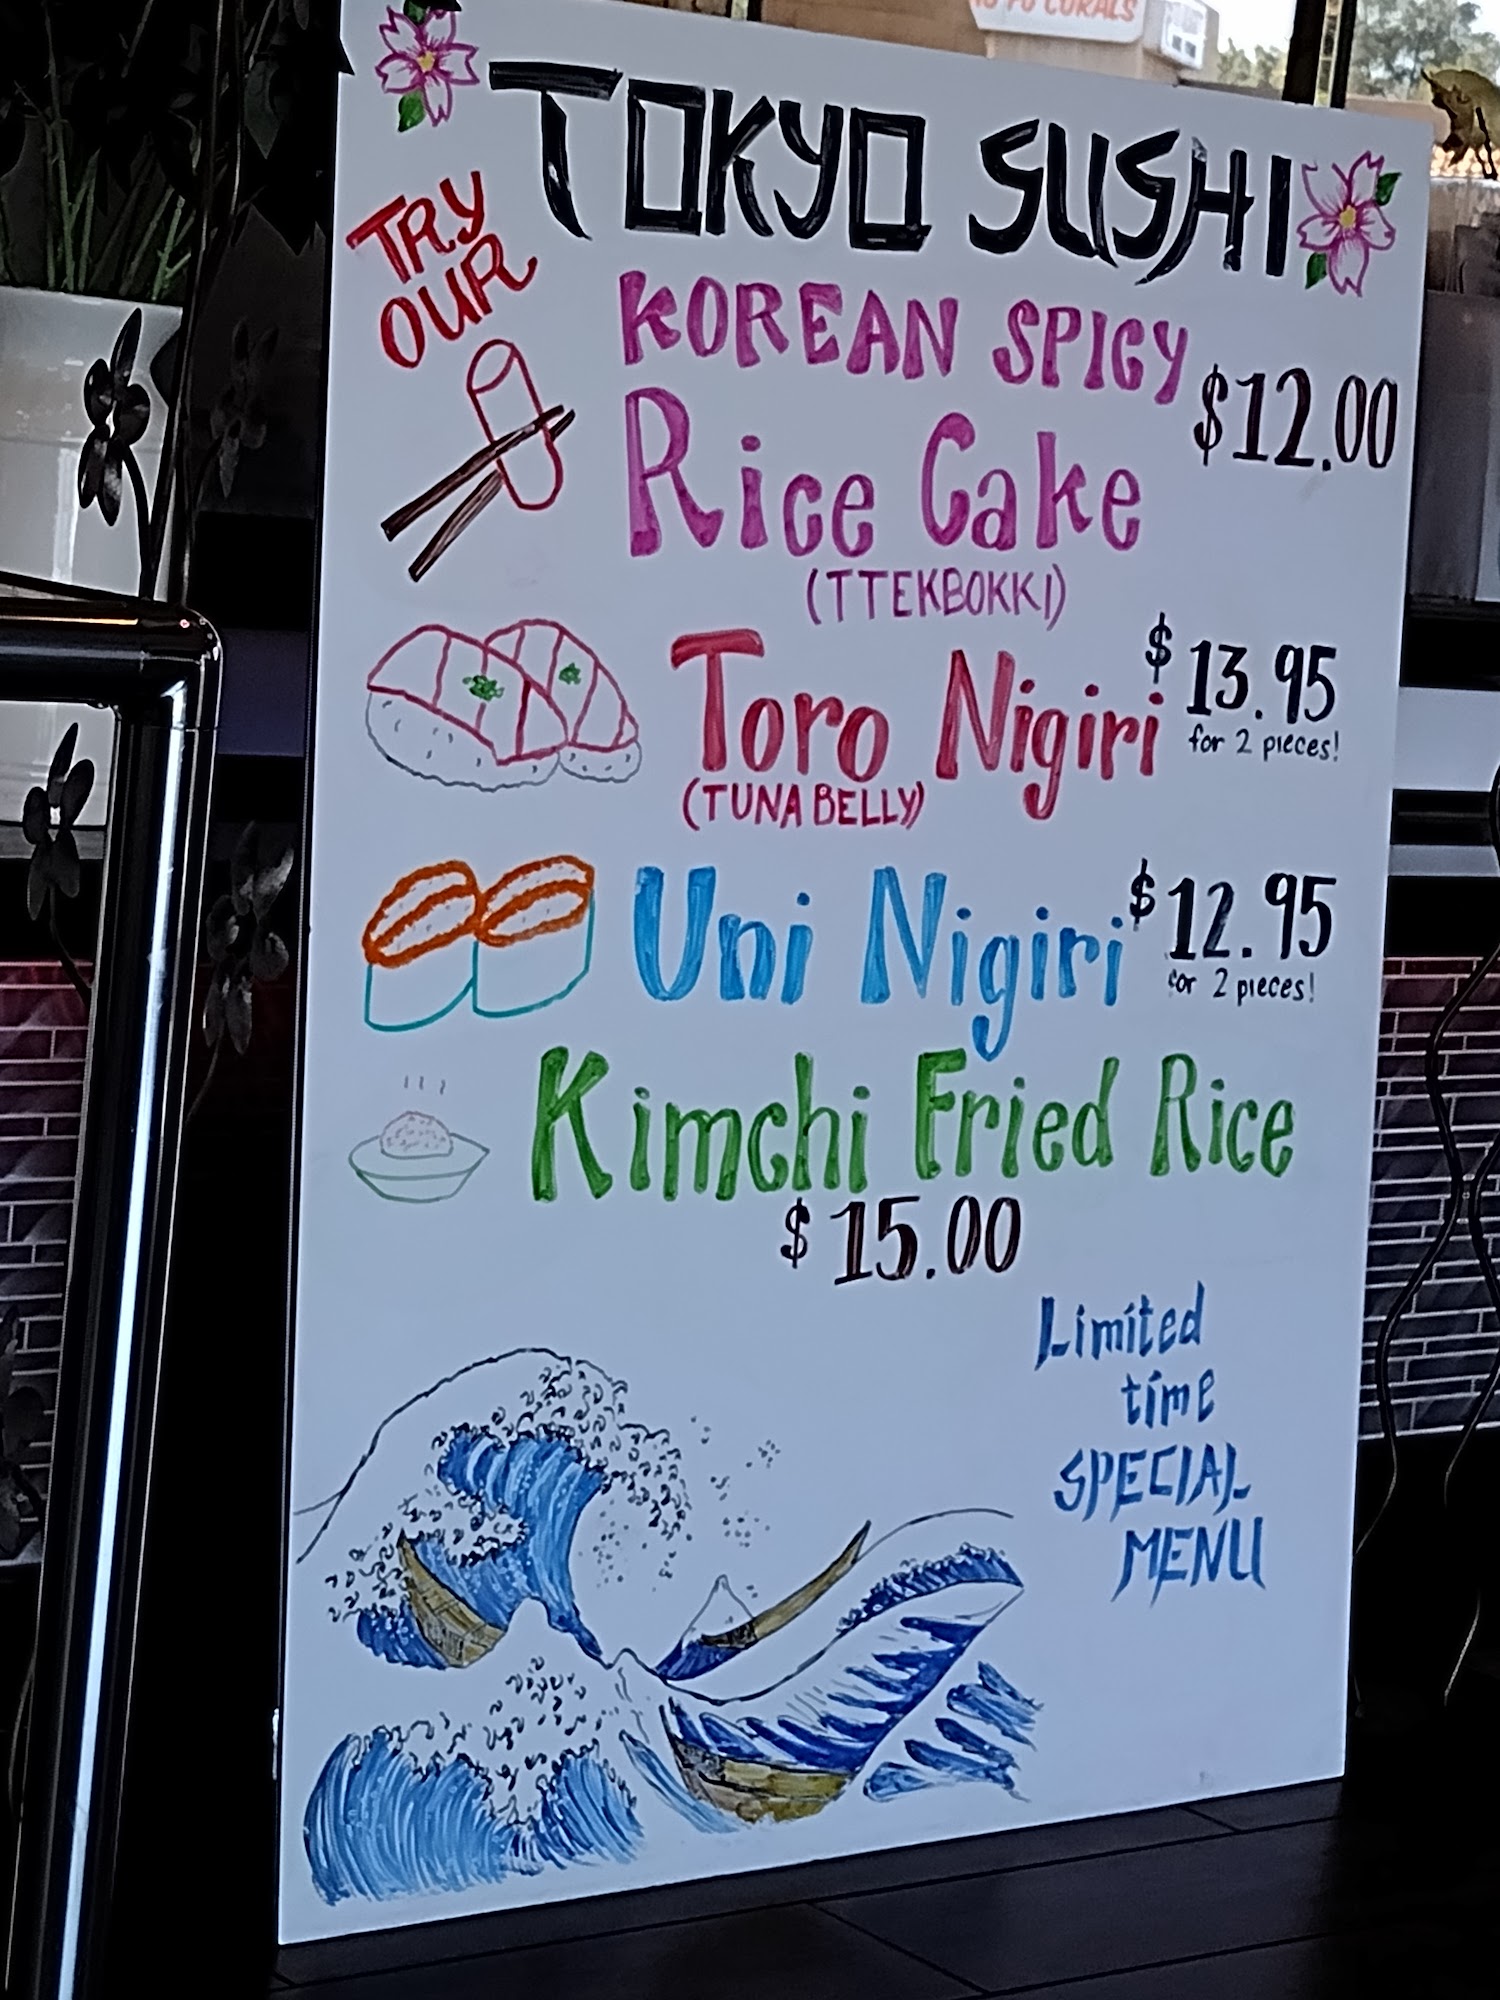 TOKYO SUSHI
TRY
OUR
KOREAN SPICY
Rice Cake
$12.00
(TTEKBOKKI)
Toro Nigiri
$13.95
for 2 pieces!
(TUNA BELLY)
Uni Nigiri
$12.95
for 2 pieces!
Kimchi Fried Rice
$15.00
Limited
time
SPECIAL
MENU
CORALS